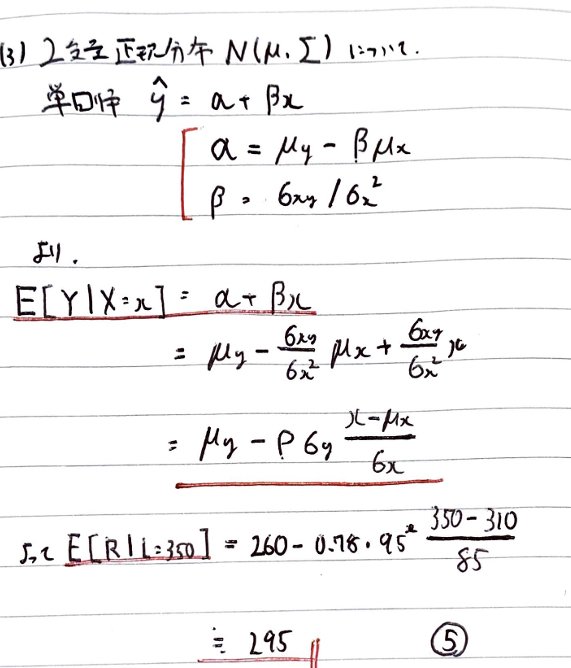 (3) 2変量正規分布 N(μ, Σ) について.
単回帰 ŷ = α + βx
α = μy - βμx
β = σxy / σx²
より.
E[Y|X=x] = α + βx
= μy - σxy/σx² μx + σxy/σx² x
= μy - ρσy (x-μx)/σx
よって E[R|L=350] = 260 - 0.78・95² (350-310)/85
≒ 295 ⑤